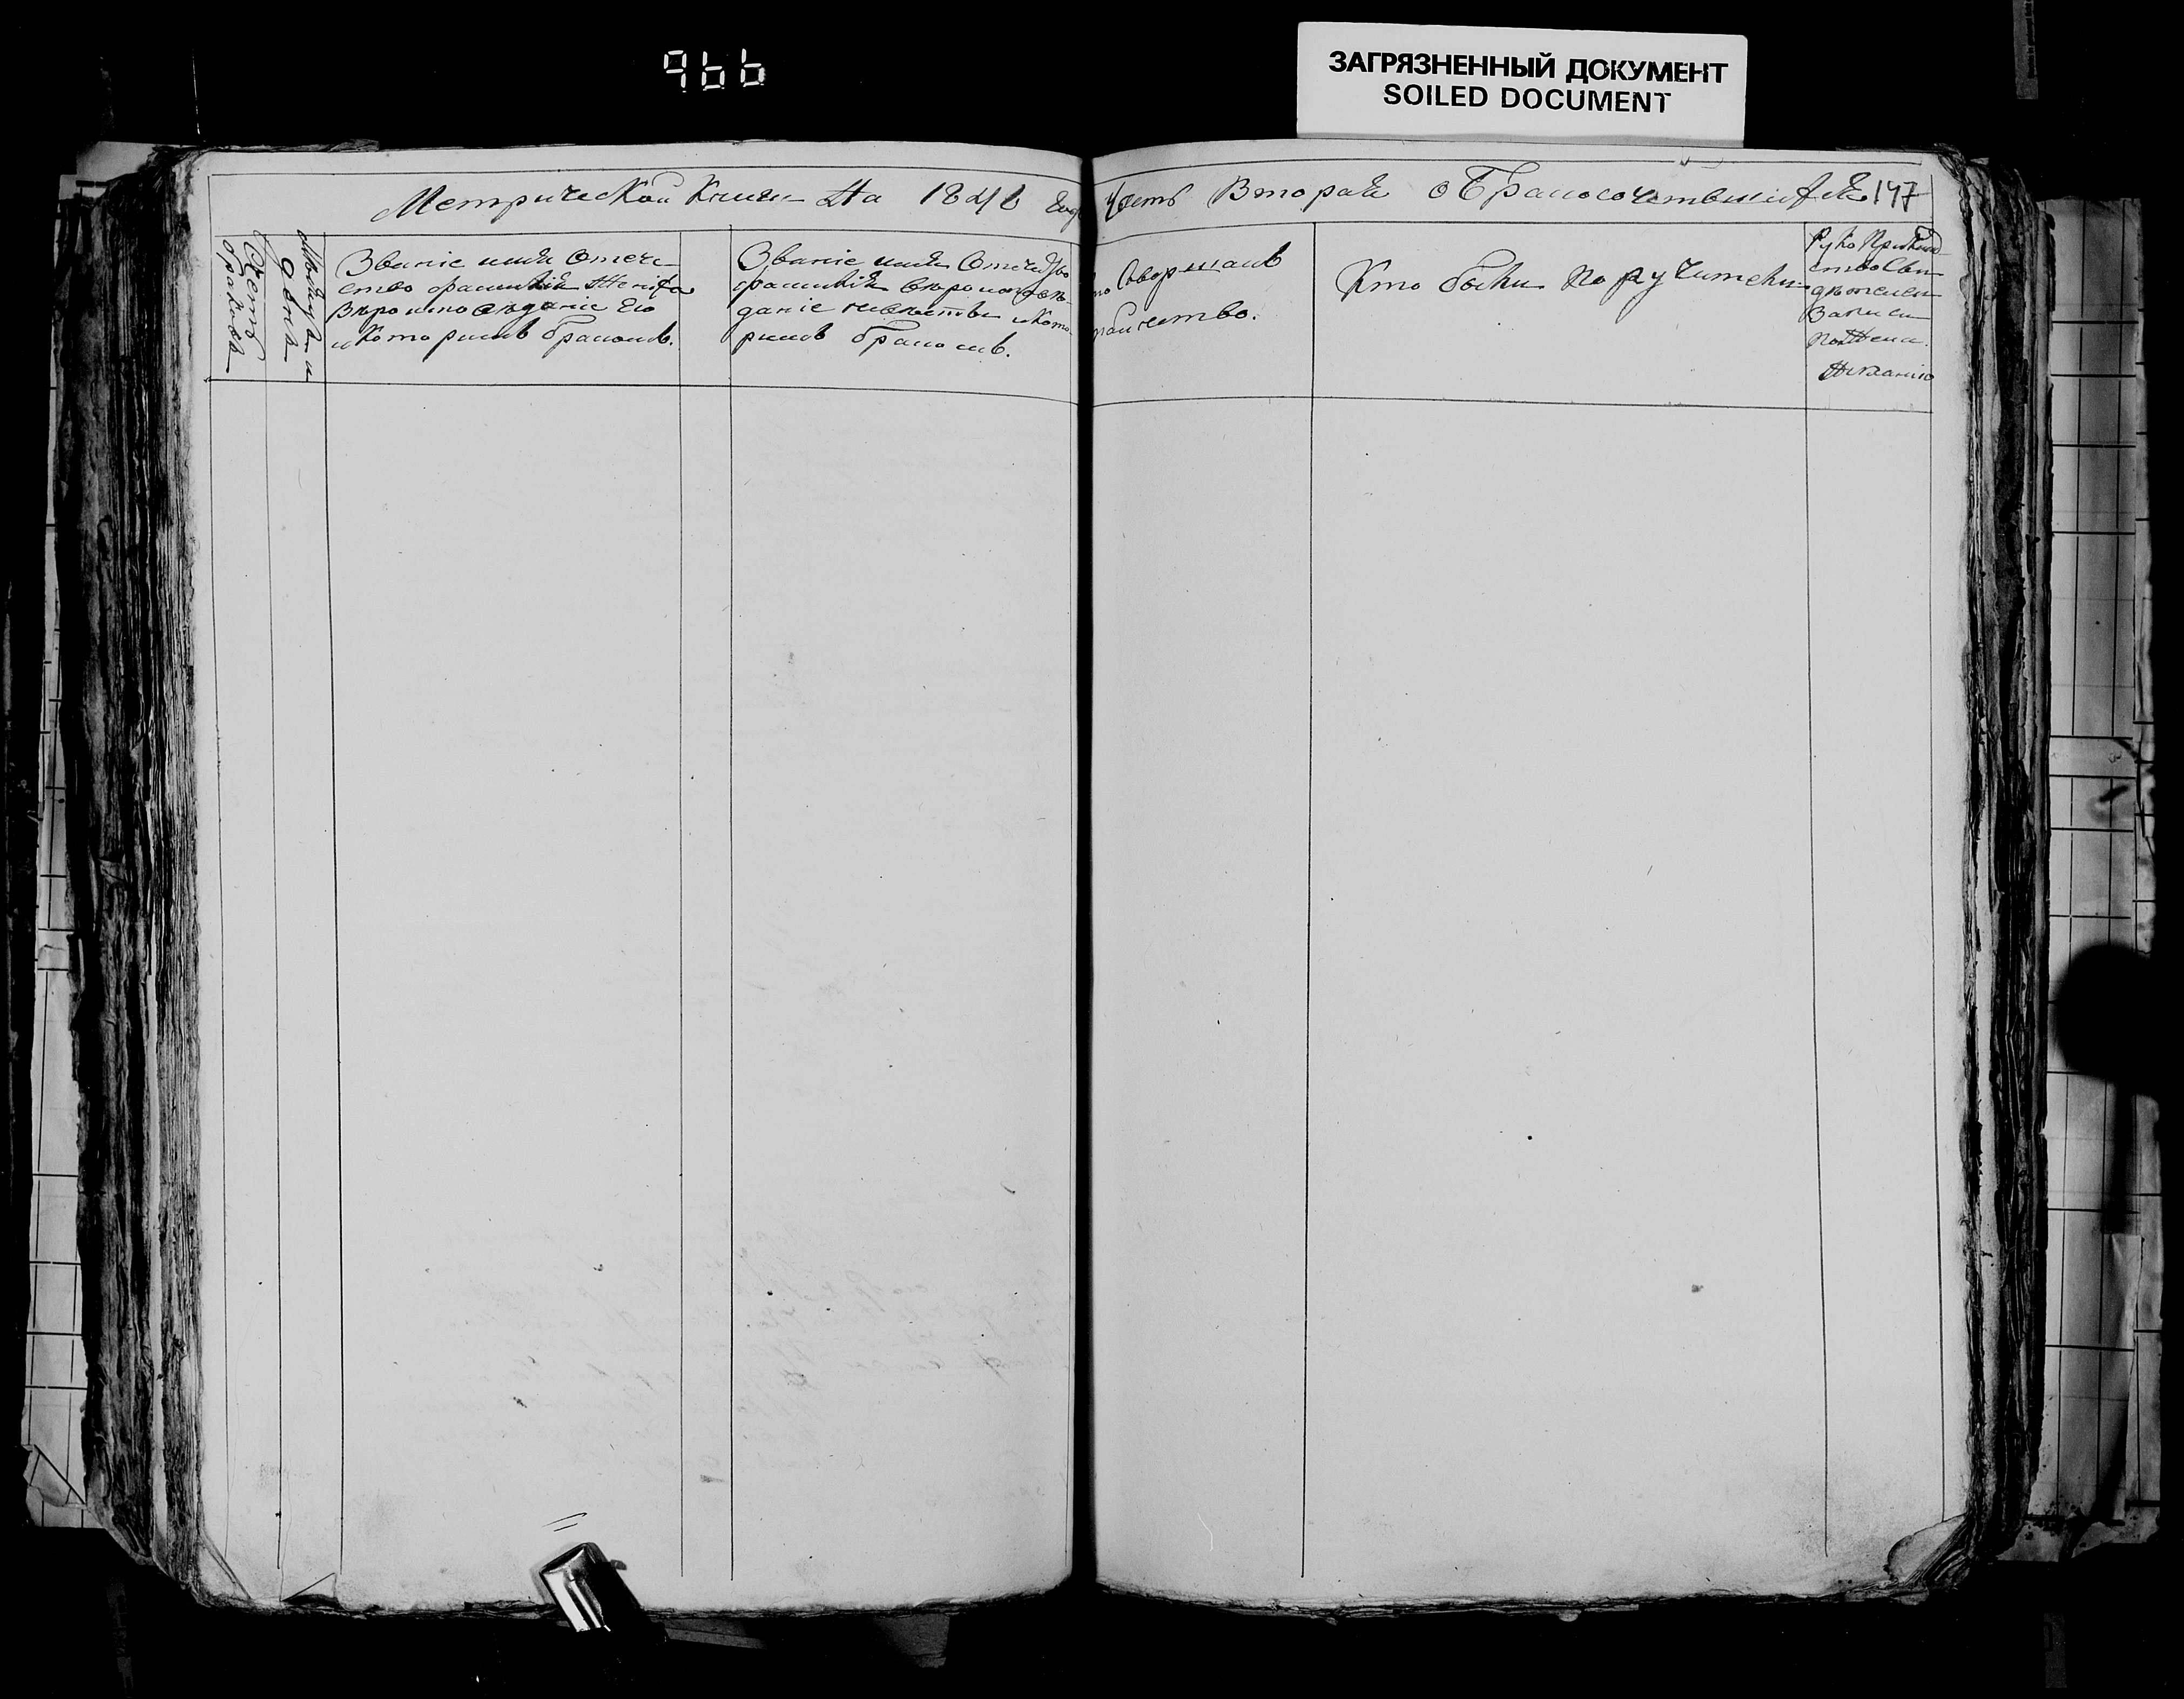 966
ЗАГРЯЗНЕННЫЙ ДОКУМЕНТ
SOILED DOCUMENT
Метрической Книги На 1846 Годъ Часть Вторая о Бракосочетавшихся 147
Счетъ
браковъ
Месяцъ и
день
Званіе имя Отече-
ство фамилія Жениха
Вероисповеданіе Его
и Которымъ бракомъ.
Званіе имя Отечество
фамилія вероиспове-
даніе невесты и Кото-
рымъ бракомъ.
то Совершалъ
таинство.
Кто были Поручители
Рукоприклад-
ство Сви-
детелей
Записи
По Жела-
нию